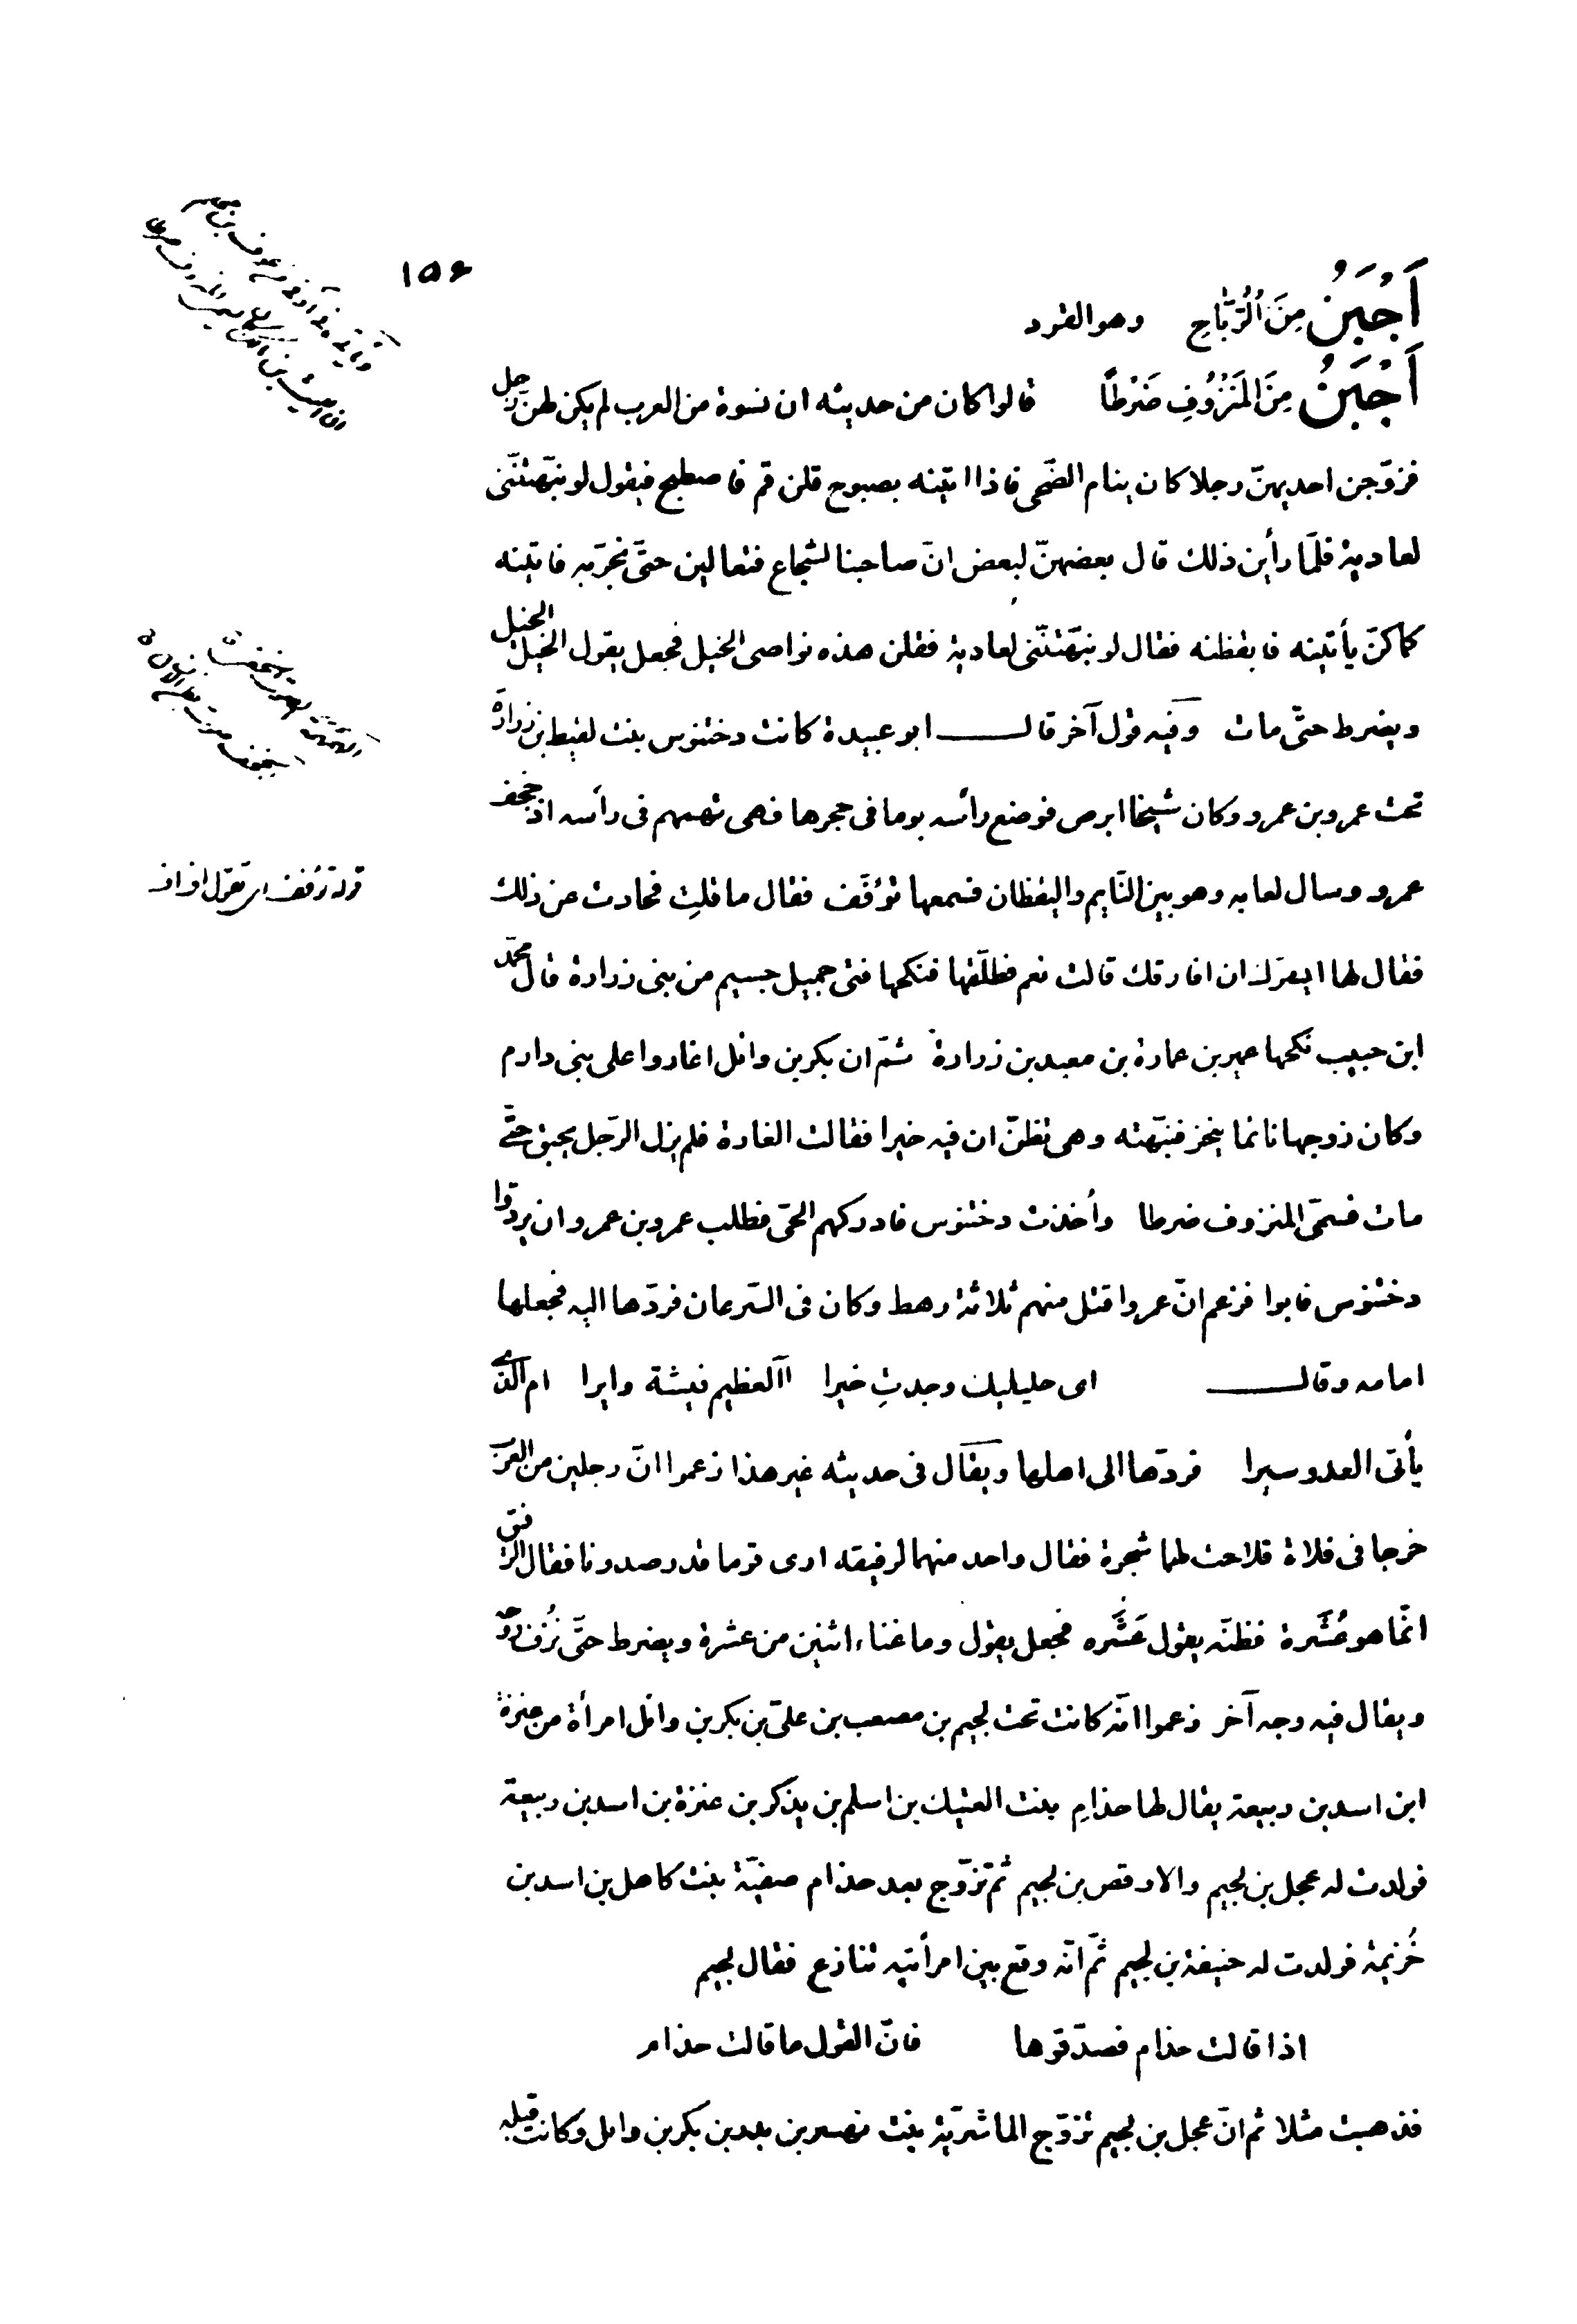 ١٥٦
اَجْبَنُ مِنَ الرُّبَّاحِ وهو القرد
اَجْبَنُ مِنَ المَنْزُوفِ ضَرْطًا قالوا كان من حديثه ان نسوة من العرب لم يكن لهن رجل
فزوّجن احديهنّ رجلا كان ينام الضّحى فاذا اتينه بصبوح قلن قم فاصطبح فيقول لو نبّهتنّنى
لعادية فلمّا رأين ذلك قال بعضهنّ لبعض انّ صاحبنا لشجاع فتعالين حتّى نجرّبه فاتينه
كما كنّ يأتينه فايقظنه فقال لو نبّهتنّنى لعادية فقلن هذه نواصى الخيل فجعل يقول الخيل الخيل
ويضرط حتّى مات وفيه قول آخر قال ابو عبيدة كانت دختنوس بنت لقيط بن زرارة
تحت عمرو بن عمرو وكان شيخا ابرص فوضع رأسه يوما فى حجرها فهى تهمهم فى رأسه اذ جخف
عمرو وسال لعابه وهو بين النّايم واليقظان فسمعها تؤفّف فقال ما قلتِ فحادت عن ذلك
فقال لها ايسرّك ان افارقك قالت نعم فطلّقها فنكحها فتى جميل جسيم من بنى زرارة قال محمّد
ابن حبيب نكحها عمير بن عمارة بن معبد بن زرارة ثمّ ان بكر بن وائل اغاروا على بنى دارم
وكان زوجها نائما ينخر فنبّهته وهى تظنّ ان فيه خيرا فقالت الغارة فلم يزل الرّجل يحبق حتّى
مات فسمّى المنزوف ضرطا وأخذت دختنوس فادركهم الحىّ فطلب عمرو بن عمرو ان يردّوا
دختنوس فابوا فزعم انّ عمروا قتل منهم ثلاثة رهط وكان فى السّرعان فردّها اليه فجعلها
امامه وقال اى حليليك وجدتِ خيرا اآلعظيم فيشة وايرا ام الذى
يأتى العدو سيرا فردّها الى اهلها ويقال فى حديثه غير هذا زعموا انّ رجلين من العرب
خرجا فى فلاة فلاحت لهما شجرة فقال واحد منهما لرفيقه ارى قوما قد رصدونا فقال الرّفيق
انّما هو عُشَرة فظنّه يقول عَشَره فجعل يقول وما غناء اثنين من عشرة ويضرط حتّى نُزف روحه
ويقال فيه وجه آخر زعموا انّه كانت تحت لجيم بن مصعب بن علىّ بن بكر بن وائل امرأة من عنزة
ابن اسد بن ربيعة يقال لها حذامِ بنت العتيك بن اسلم بن يذكر بن عنزة بن اسد بن ربيعة
فولدت له عجل بن لجيم والاوقص بن لجيم ثمّ تزوّج بعد حذام صفيّة بنت كاهل بن اسد بن
خُزيمة فولدت له حنيفة بن لجيم ثمّ انّه وقع بين امرأتيه تنازع فقال لجيم
اذا قالت حذام فصدّقوها فانّ القول ما قالت حذام
فذهبت مثلا ثم انّ عجل بن لجيم تزوّج الماشريّة بنت نهسر بن بدر بن بكر بن وايل وكانت قبله
قوله تؤفف اى تقول اف اف